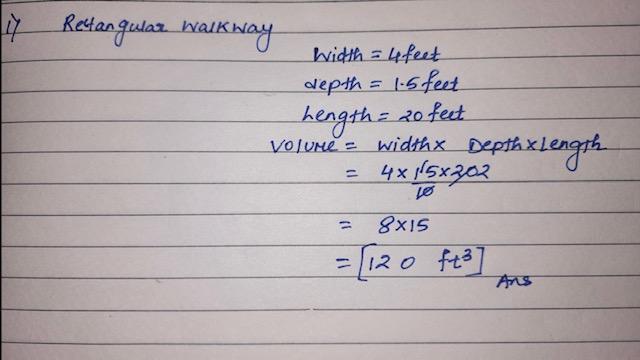 i) Rectangular walkway
width = 4 feet
depth = 1.5 feet
Length = 20 feet
VOLUME = width x Depth x Length
= 4 x 15/10 x 20 2
= 8x15
= [120 ft³]
Ans